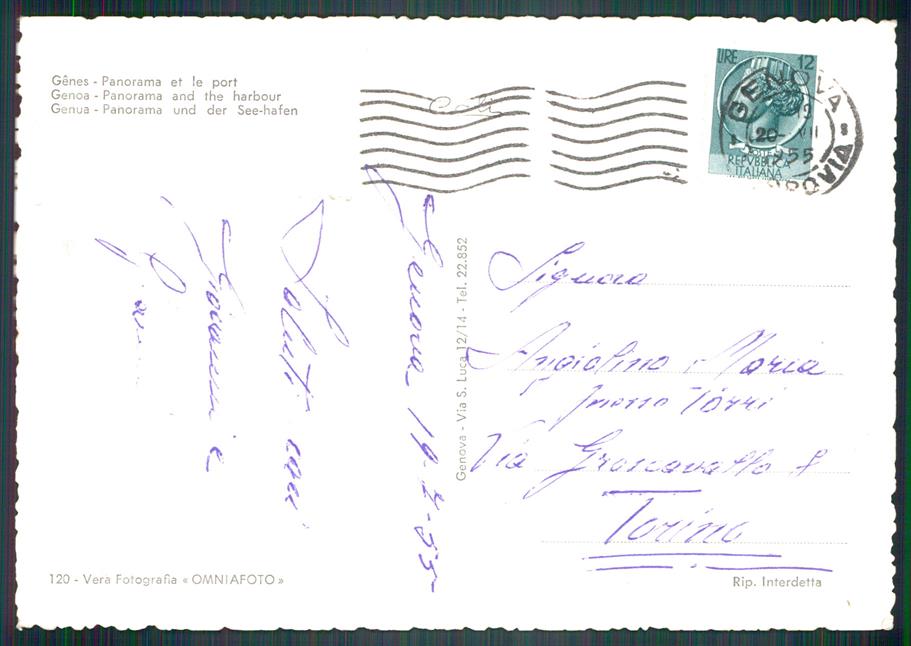 Gênes - Panorama et le port
Genoa - Panorama and the harbour
Genua - Panorama und der See-hafen
LIRE 12
REPVBBLICA
ITALIANA
GENOVA
20 - VII
1955
Genova - Via S. Luca 12/14 - Tel. 22.852
Genova 19-7-55
Saluti cari
Giovanni e
Signora
Angiolino Maria
presso Torri
Via Groscavallo 8
Torino
120 - Vera Fotografia « OMNIAFOTO »
Rip. Interdetta